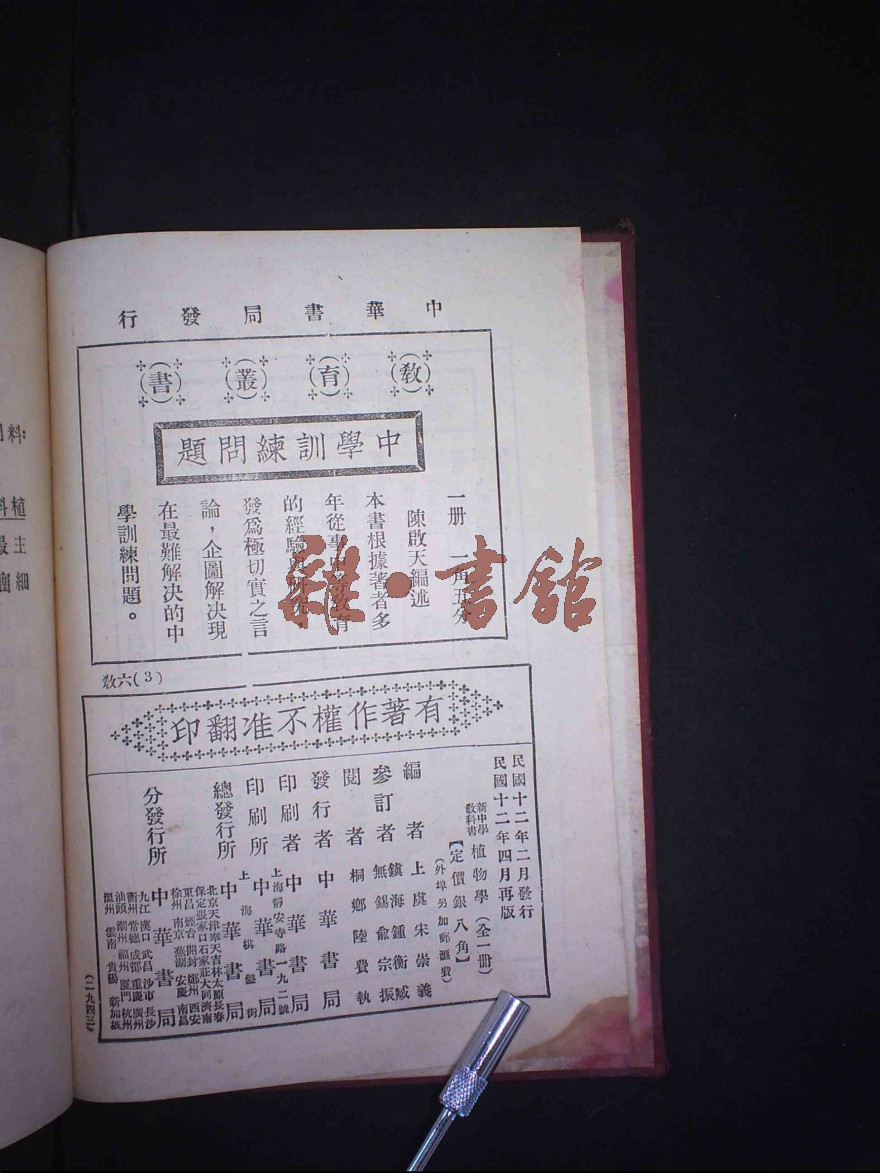 中華書局發行
教育叢書
中學訓練問題
一册 一角五分
陳啟天編述
本書根據著者多
年從事中等教育
的經驗
發爲極切實之言
論，企圖解決現
在最難解決的中
學訓練問題。
教六(3)
有著作權不准翻印
民國十二年二月發行
民國十二年四月再版
新中學教科書 植物學（全一册）
【定價銀八角】
（外埠另加郵滙費）
編者 上虞宋崇義
參訂者 鎮海鍾衡臧
無錫俞宗振
閱者 桐鄉陸費執
發行者 中華書局
印刷者 中華書局
印刷所 上海靜安寺路一九二號 中華書局
總發行所 上海棋盤街 中華書局
分發行所 中華書局
北京天津奉天吉林太原長春
保定張家口石家莊大同濟南
東昌烟台開封鄭州西安
徐州南京蕪湖安慶南昌
九江漢口武昌沙市長沙
衡州常德成都重慶廣州
汕頭潮州福州厦門杭州
溫州雲南貴陽新加坡
（二九四三）
雜·書館